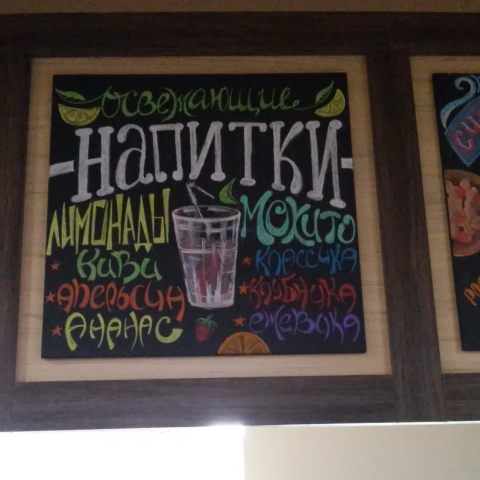 Освежающие
НАПИТКИ
ЛИМОНАДЫ
КИВИ
АПЕЛЬСИН
АНАНАС
МОХИТО
КЛАССИКА
КЛУБНИКА
ЕЖЕВИКА